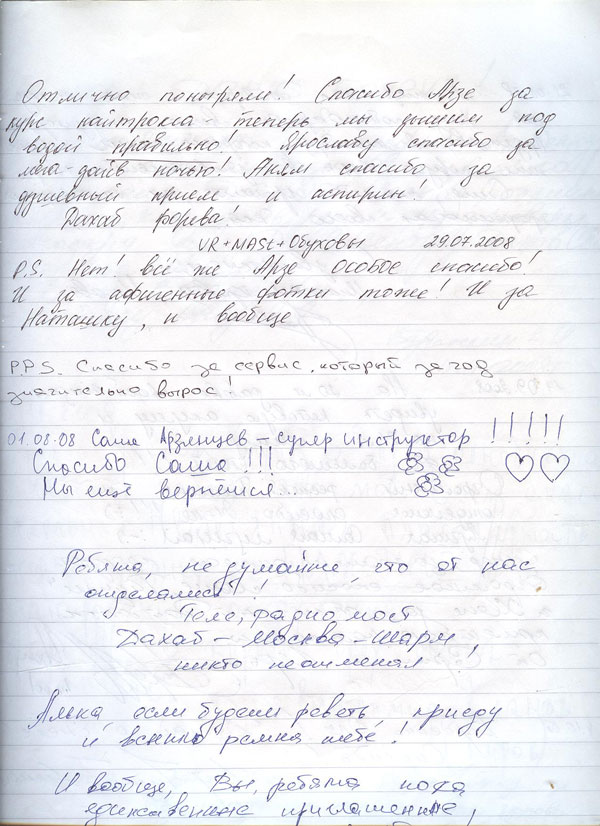 Отлично поныряли! Спасибо Арзе за
курс найтрокса - теперь мы дышим под
водой правильно! Ярославу спасибо за
мега-дайв ночью! Аням спасибо за
душевный прием и аспирин!
Дахаб форева!
VR+MASL+Обуховы 29.07.2008
P.S. Нет! всё же Арзе ОСОБОЕ спасибо!
И за афигенные фотки тоже! И за
Наташку, и вообще
P.P.S. Спасибо за сервис, который за год
значительно вырос!
01.08.08 Саша Арзянцев - супер инструктор !!!!!
Спасибо Саша!!!
Мы ещё вернёмся...
Ребята, не думайте, что от нас
отделались!!
Теле, радио, мост
Дахаб - Москва - Шарм,
никто не отменял!
если будешь реветь, приеду
и всыплю ремня тебе!
И вообще, Вы, ребята пока
единственные приглашенные,